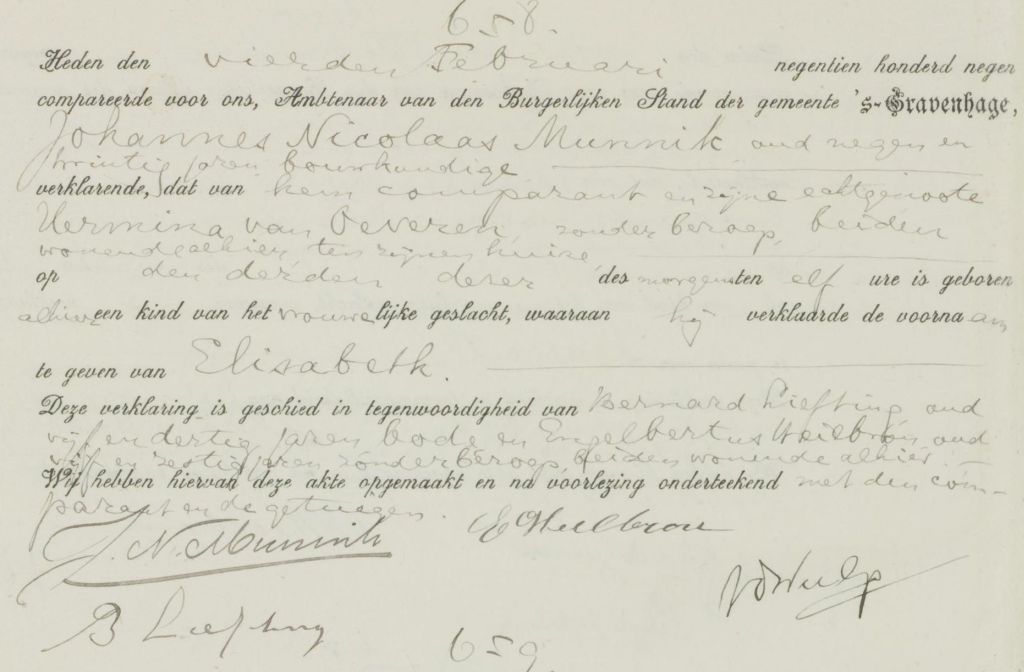 658.
Heden den vierden Februari negentien honderd negen
compareerde voor ons, Ambtenaar van den Burgerlijken Stand der gemeente 's-Gravenhage,
Johannes Nicolaas Munnik oud negen en
twintig jaren bouwkundige
verklarende, dat van hem comparant en zijne echtgenoote
Hermina van Oeveren, zonder beroep, beiden
wonende alhier, ten zijnen huize
op den derden dezer des morgens ten elf ure is geboren
alhier een kind van het vrouwelijke geslacht, waaraan hij verklaarde de voornaam
te geven van Elisabeth.
Deze verklaring is geschied in tegenwoordigheid van Bernard Liefting, oud
vijf en dertig jaren bode en Engelbertus Heilbron, oud
vijf en zestig jaren, zonder beroep, beiden wonende alhier.
Wij hebben hiervan deze akte opgemaakt en na voorlezing onderteekend met den com-
parant en de getuigen.
J. N. Munnik EHeilbron
B Liefting
659.